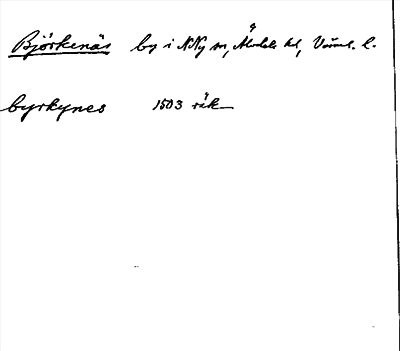 Björkenäs by i N Ny sn, Älvdals hd, Värml. l.
byrkynes 1503 räk